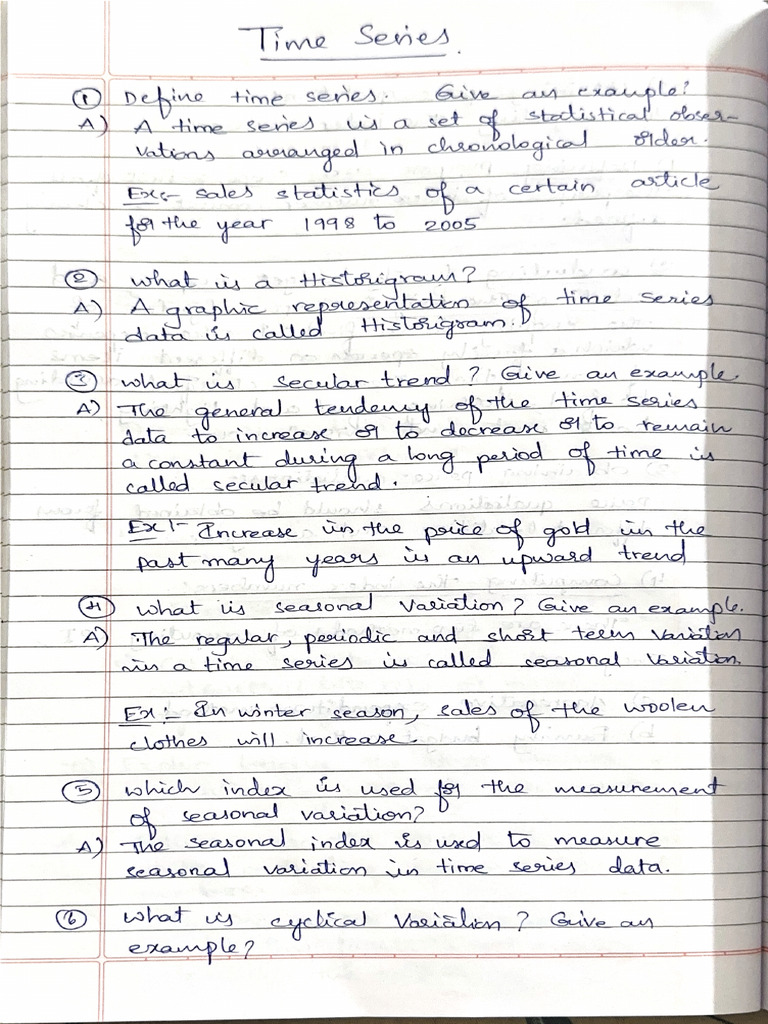 Time Series.
① Define time series. Give an example?
A) A time series is a set of statistical obser-
vations arranged in chronological order.
Ex:- sales statistics of a certain article
for the year 1998 to 2005
② what is a Historigram?
A) A graphic representation of time series
data is called Historigram.
③ what is secular trend? Give an example.
A) The general tendency of the time series
data to increase or to decrease or to remain
a constant during a long period of time is
called secular trend.
Ex:- Increase in the price of gold in the
past many years is an upward trend
④ what is seasonal variation? Give an example.
A) The regular, periodic and short term variation
in a time series is called seasonal variation.
Ex:- In winter season, sales of the woolen
clothes will increase.
⑤ which index is used for the measurement
of seasonal variation?
A) The seasonal index is used to measure
seasonal variation in time series data.
⑥ what is cyclical variation? Give an
example?